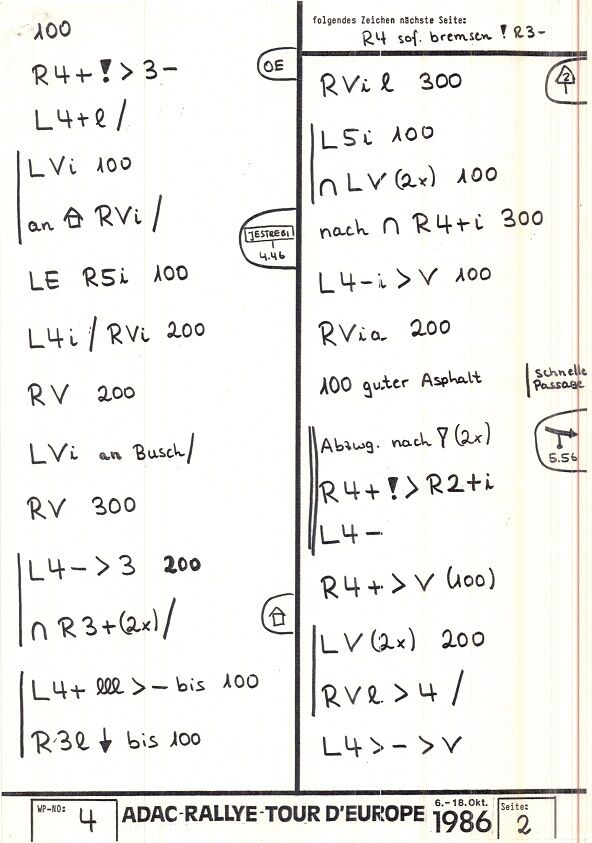 100
R4+ ! > 3-
OE
L4+ℓ /
LVi 100
an ⌂ RVi /
JESTREBI
4.46
LE R5i 100
L4i / RVi 200
RV 200
LVi an Busch /
RV 300
L4- > 3 200
∩ R3+(2x) /
L4+ ℓℓℓ > - bis 100
R3ℓ ↓ bis 100
folgendes Zeichen nächste Seite:
R4 sof. bremsen ! R3-
RViℓ 300
2
L5i 100
∩ LV (2x) 100
nach ∩ R4+i 300
L4-i > V 100
RVia 200
100 guter Asphalt
schnelle
Passage
Abzwg. nach ∇ (2x)
5.56
R4+ ! > R2+i
L4-
R4+ > V (100)
LV (2x) 200
RVℓ > 4 /
L4 > - > V
WP-NO: 4
ADAC-RALLYE-TOUR D'EUROPE
6.-18.Okt.
1986
Seite:
2